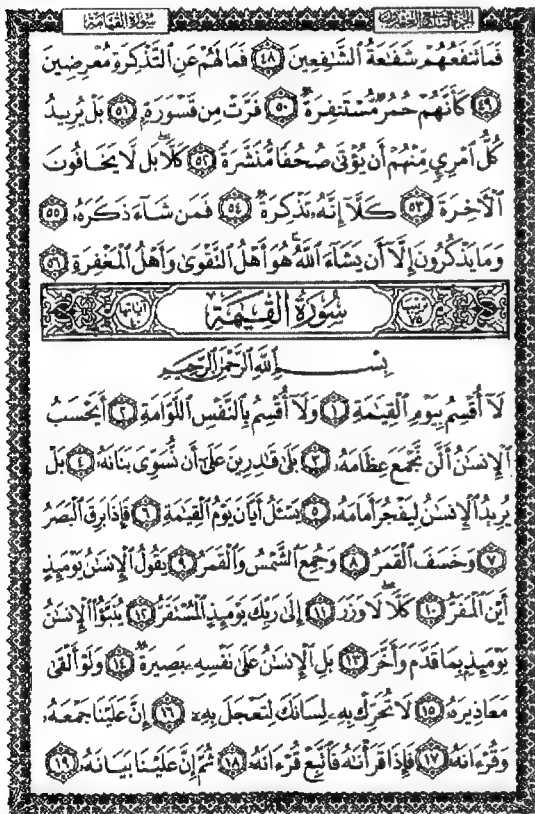 الجزء التاسع والعشرون سورة القيامة
فَمَا تَنفَعُهُمْ شَفَٰعَةُ ٱلشَّٰفِعِينَ ٤٨ فَمَا لَهُمْ عَنِ ٱلتَّذْكِرَةِ مُعْرِضِينَ
٤٩ كَأَنَّهُمْ حُمُرٌ مُّسْتَنفِرَةٌ ٥٠ فَرَّتْ مِن قَسْوَرَةٍ ٥١ بَلْ يُرِيدُ
كُلُّ ٱمْرِئٍ مِّنْهُمْ أَن يُؤْتَىٰ صُحُفًا مُّنَشَّرَةً ٥٢ كَلَّا بَل لَّا يَخَافُونَ
ٱلْأَخِرَةَ ٥٣ كَلَّآ إِنَّهُۥ تَذْكِرَةٌ ٥٤ فَمَن شَآءَ ذَكَرَهُۥ ٥٥
وَمَا يَذْكُرُونَ إِلَّآ أَن يَشَآءَ ٱللَّهُ هُوَ أَهْلُ ٱلتَّقْوَىٰ وَأَهْلُ ٱلْمَغْفِرَةِ ٥٦
ترتيبها ٧٥ سُورَةُ القِيَٰمَةِ آياتها ٤٠
بِسْمِ ٱللَّهِ ٱلرَّحْمَٰنِ ٱلرَّحِيمِ
لَآ أُقْسِمُ بِيَوْمِ ٱلْقِيَٰمَةِ ١ وَلَآ أُقْسِمُ بِٱلنَّفْسِ ٱللَّوَّامَةِ ٢ أَيَحْسَبُ
ٱلْإِنسَٰنُ أَلَّن نَّجْمَعَ عِظَامَهُۥ ٣ بَلَىٰ قَٰدِرِينَ عَلَىٰٓ أَن نُّسَوِّىَ بَنَانَهُۥ ٤ بَلْ
يُرِيدُ ٱلْإِنسَٰنُ لِيَفْجُرَ أَمَامَهُۥ ٥ يَسْـَٔلُ أَيَّانَ يَوْمُ ٱلْقِيَٰمَةِ ٦ فَإِذَا بَرِقَ ٱلْبَصَرُ
٧ وَخَسَفَ ٱلْقَمَرُ ٨ وَجُمِعَ ٱلشَّمْسُ وَٱلْقَمَرُ ٩ يَقُولُ ٱلْإِنسَٰنُ يَوْمَئِذٍ
أَيْنَ ٱلْمَفَرُّ ١٠ كَلَّا لَا وَزَرَ ١١ إِلَىٰ رَبِّكَ يَوْمَئِذٍ ٱلْمُسْتَقَرُّ ١٢ يُنَبَّؤُا۟ ٱلْإِنسَٰنُ
يَوْمَئِذٍۭ بِمَا قَدَّمَ وَأَخَّرَ ١٣ بَلِ ٱلْإِنسَٰنُ عَلَىٰ نَفْسِهِۦ بَصِيرَةٌ ١٤ وَلَوْ أَلْقَىٰ
مَعَاذِيرَهُۥ ١٥ لَا تُحَرِّكْ بِهِۦ لِسَانَكَ لِتَعْجَلَ بِهِۦٓ ١٦ إِنَّ عَلَيْنَا جَمْعَهُۥ
وَقُرْءَانَهُۥ ١٧ فَإِذَا قَرَأْنَٰهُ فَٱتَّبِعْ قُرْءَانَهُۥ ١٨ ثُمَّ إِنَّ عَلَيْنَا بَيَانَهُۥ ١٩